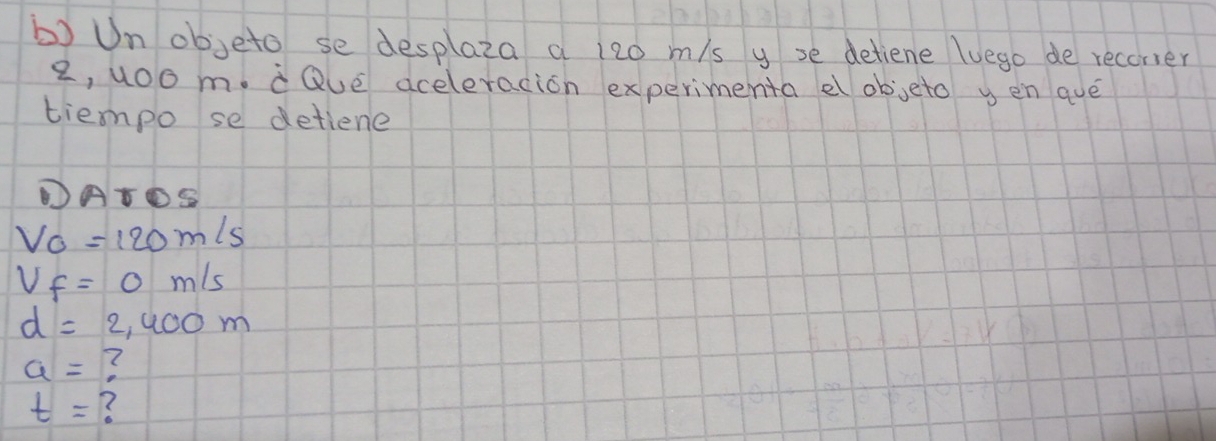 b) Un objeto se desplaza a 120 m/s y se detiene luego de recorrer
2,400 m. ¿Qué aceleración experimenta el objeto y en qué
tiempo se detiene
DATOS
Vo = 120 m/s
Vf = 0 m/s
d = 2,400 m
a = ?
t = ?